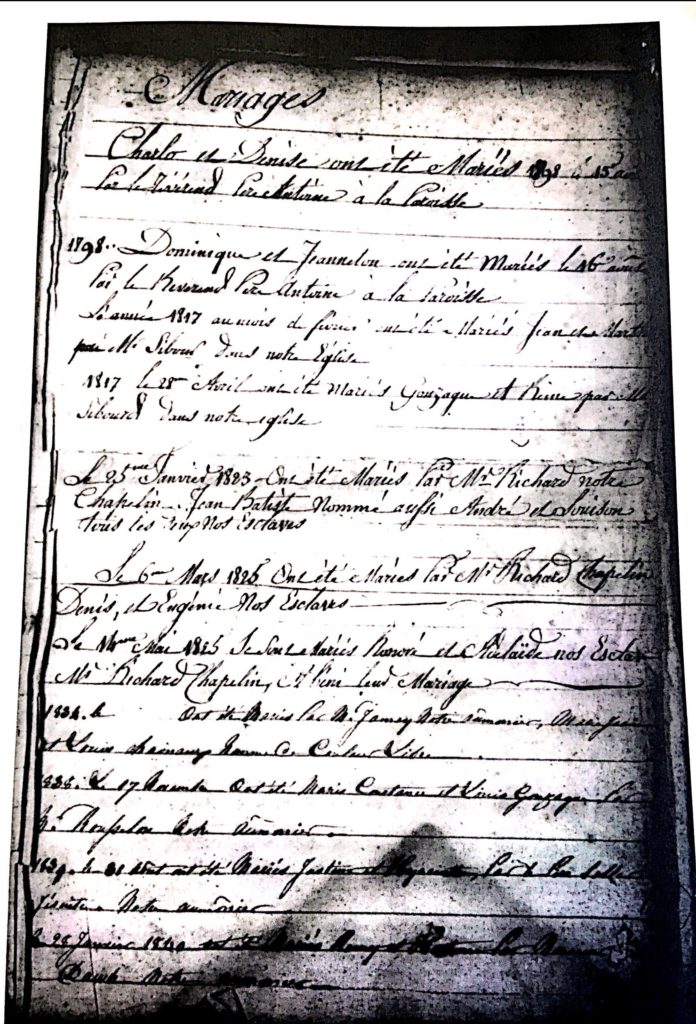 Mariages
Charlo et Denise ont été Mariés 1898 à 15
Par le Révérend Pere Antoine à la Paroisse
1898.. Dominique et Jeannelon ont été Mariés le 16e
Par le Reverend Pere Antoine à la Paroisse
L'année 1817 au mois de ont été Mariés Jean et
Mr Sibour Dans notre Eglise
1817 le 28me Avril ont été Mariés Gonzaque et Reine par Mr
Sibourd dans notre eglise
Le 25me Janvier 1823 Ont été Mariés Par Mr Richard notre
Chapelin Jean Batiste Nommé aussi André et Louison
tous les Nos Esclaves
Le 6me Mars 1825 Ont été Mariés Par Mr Richard Chapelin
Denis, et Eugénie Nos Esclaves
Le Mai 1825 Se Sont Mariés Honoré et Adélaïde nos Esclav
Mr Richard Chapelin, A béni leur Mariage
1834. le Ont été Mariés Par M. Jamey Notre aumonier,
et Louis homme de Couleur Libre
1838. Le 17 Novembre Ont été Mariés Constance et Louis Gonzague Par
M. Rousselon Notre aumonier
1839. le 31 ont été Mariés Justine et Par
Jésuite Notre aumônier
Le 28 Janvier 1840 ont été Mariés et Par
Notre aumonier